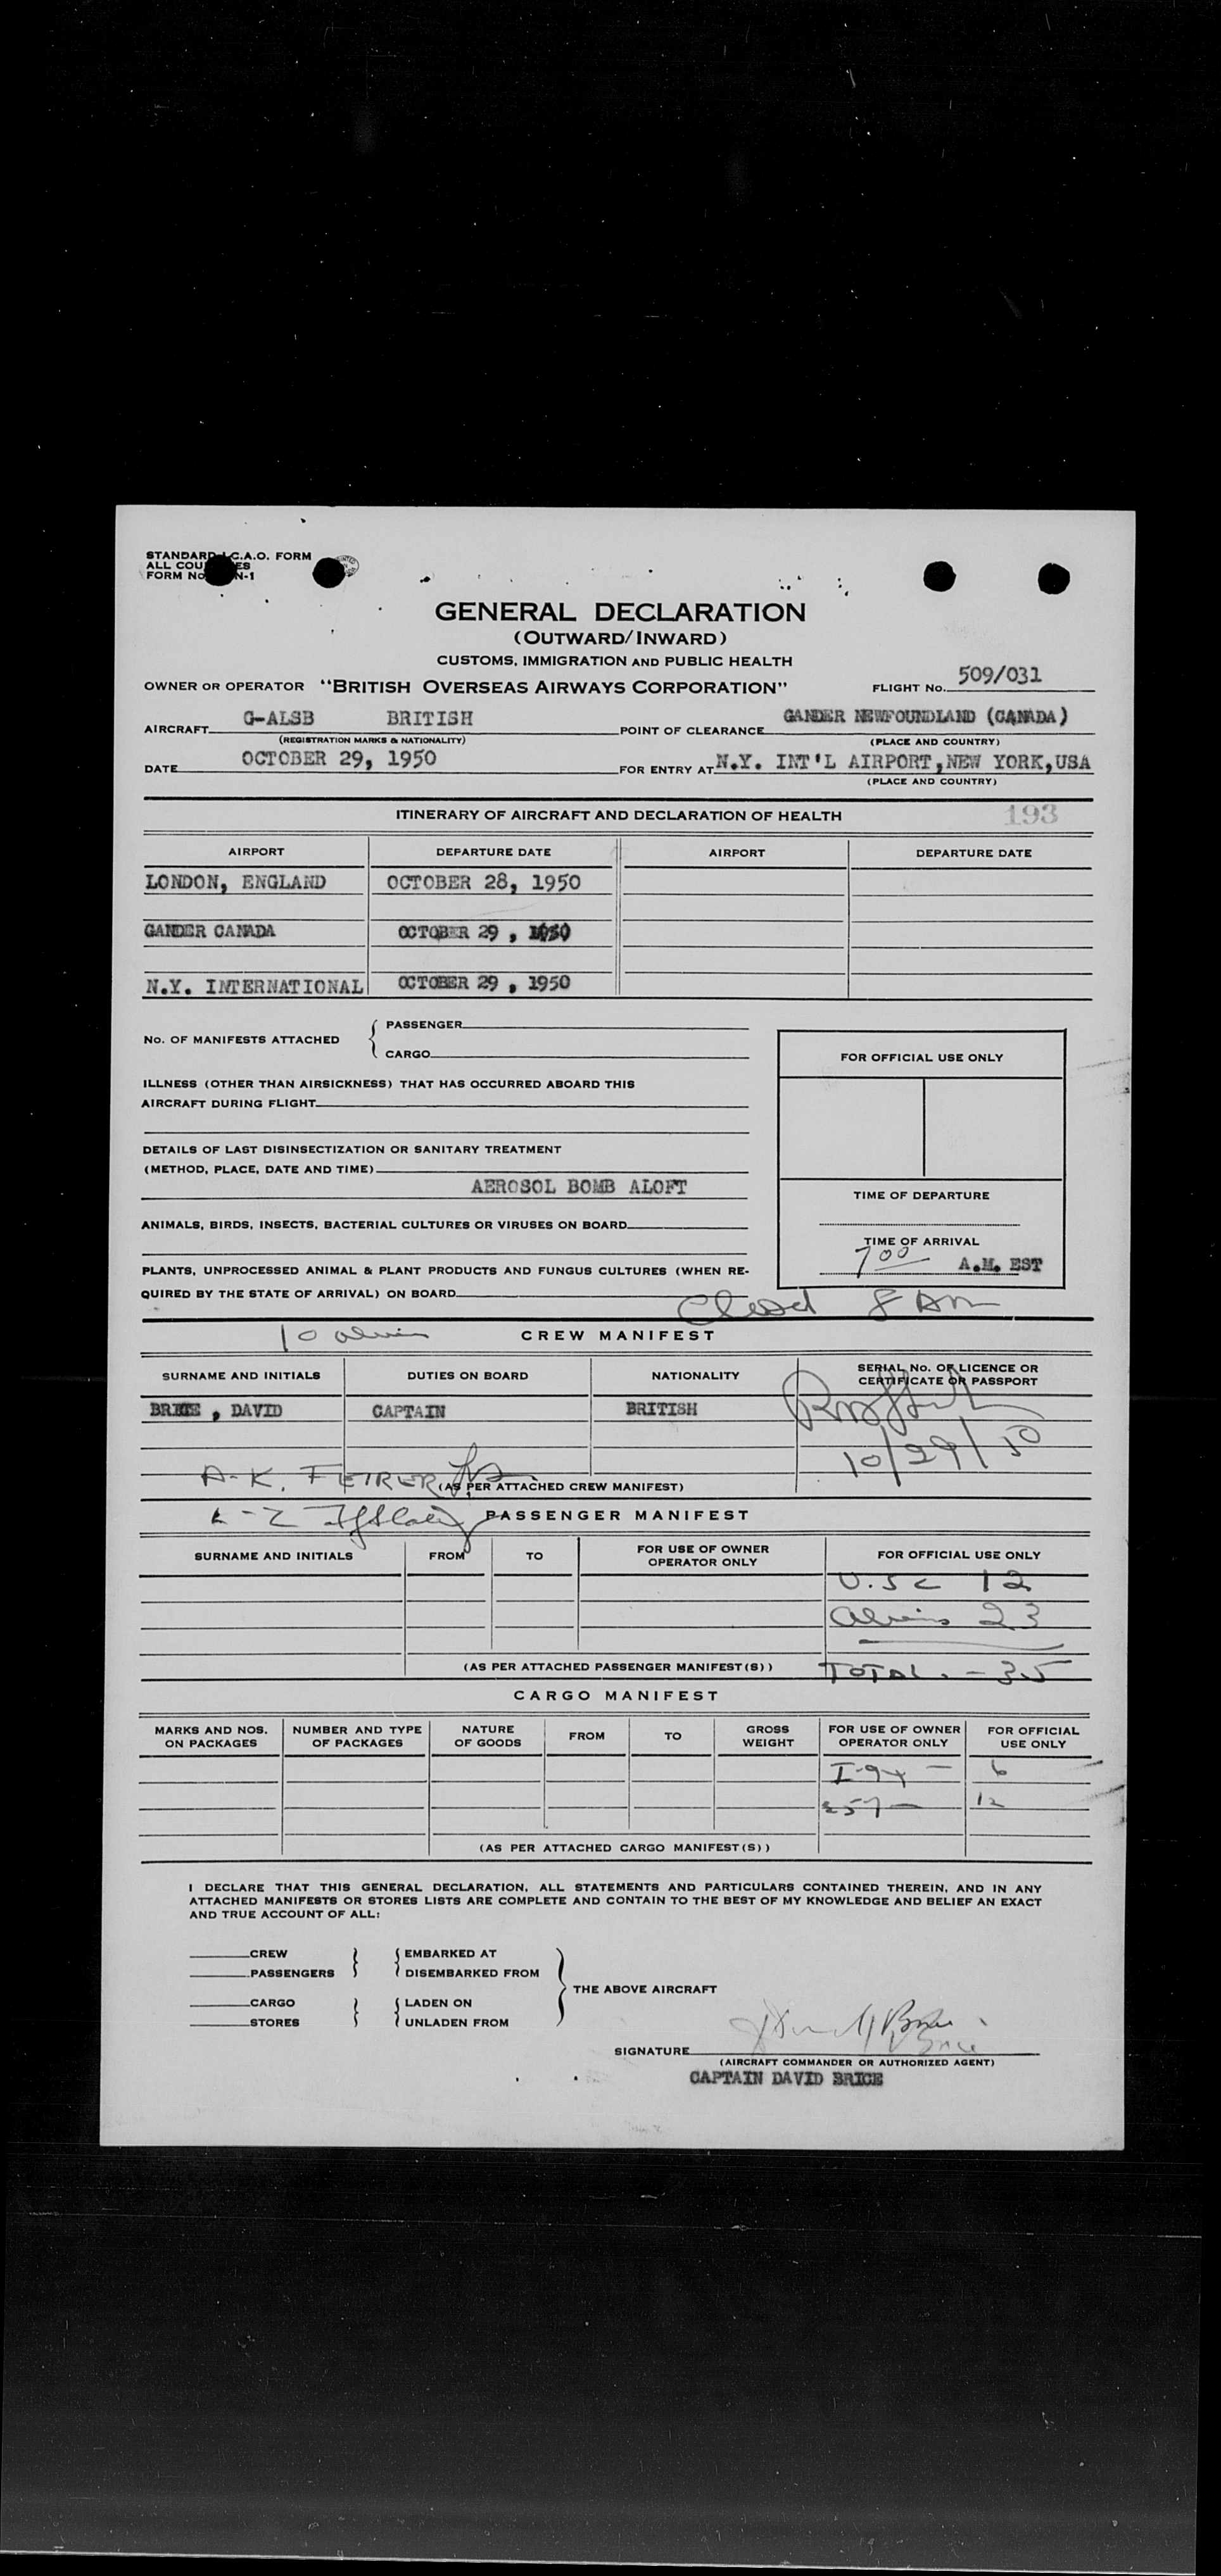 STANDARD I.C.A.O. FORM
ALL COU ES
FORM NO. N-1
GENERAL DECLARATION
(OUTWARD/INWARD)
CUSTOMS, IMMIGRATION AND PUBLIC HEALTH
OWNER OR OPERATOR "BRITISH OVERSEAS AIRWAYS CORPORATION" FLIGHT NO. 509/031
AIRCRAFT G-ALSB BRITISH POINT OF CLEARANCE GANDER NEWFOUNDLAND (CANADA)
(REGISTRATION MARKS & NATIONALITY) (PLACE AND COUNTRY)
DATE OCTOBER 29, 1950 FOR ENTRY AT N.Y. INT'L AIRPORT, NEW YORK, USA
(PLACE AND COUNTRY)
ITINERARY OF AIRCRAFT AND DECLARATION OF HEALTH 193
AIRPORT DEPARTURE DATE AIRPORT DEPARTURE DATE
LONDON, ENGLAND OCTOBER 28, 1950
GANDER CANADA OCTOBER 29, 1950
N.Y. INTERNATIONAL OCTOBER 29, 1950
NO. OF MANIFESTS ATTACHED
PASSENGER
CARGO
FOR OFFICIAL USE ONLY
ILLNESS (OTHER THAN AIRSICKNESS) THAT HAS OCCURRED ABOARD THIS
AIRCRAFT DURING FLIGHT
DETAILS OF LAST DISINSECTIZATION OR SANITARY TREATMENT
(METHOD, PLACE, DATE AND TIME)
AEROSOL BOMB ALOFT
TIME OF DEPARTURE
ANIMALS, BIRDS, INSECTS, BACTERIAL CULTURES OR VIRUSES ON BOARD
TIME OF ARRIVAL
7 00 A.M. EST
PLANTS, UNPROCESSED ANIMAL & PLANT PRODUCTS AND FUNGUS CULTURES (WHEN RE-
QUIRED BY THE STATE OF ARRIVAL) ON BOARD
8 Am
10 CREW MANIFEST
SURNAME AND INITIALS DUTIES ON BOARD NATIONALITY SERIAL NO. OF LICENCE OR
CERTIFICATE OR PASSPORT
BRICE, DAVID CAPTAIN BRITISH
10/29/50
A-K. FEIRER (AS PER ATTACHED CREW MANIFEST)
L-Z PASSENGER MANIFEST
SURNAME AND INITIALS FROM TO FOR USE OF OWNER
OPERATOR ONLY FOR OFFICIAL USE ONLY
U.S C 12
Aliens 23
(AS PER ATTACHED PASSENGER MANIFEST(S)) TOTAL. - 35
CARGO MANIFEST
MARKS AND NOS.
ON PACKAGES NUMBER AND TYPE
OF PACKAGES NATURE
OF GOODS FROM TO GROSS
WEIGHT FOR USE OF OWNER
OPERATOR ONLY FOR OFFICIAL
USE ONLY
I-94 - 6
257 - 12
(AS PER ATTACHED CARGO MANIFEST(S))
I DECLARE THAT THIS GENERAL DECLARATION, ALL STATEMENTS AND PARTICULARS CONTAINED THEREIN, AND IN ANY
ATTACHED MANIFESTS OR STORES LISTS ARE COMPLETE AND CONTAIN TO THE BEST OF MY KNOWLEDGE AND BELIEF AN EXACT
AND TRUE ACCOUNT OF ALL:
CREW EMBARKED AT
PASSENGERS DISEMBARKED FROM
THE ABOVE AIRCRAFT
CARGO LADEN ON
STORES UNLADEN FROM
SIGNATURE
(AIRCRAFT COMMANDER OR AUTHORIZED AGENT)
CAPTAIN DAVID BRICE